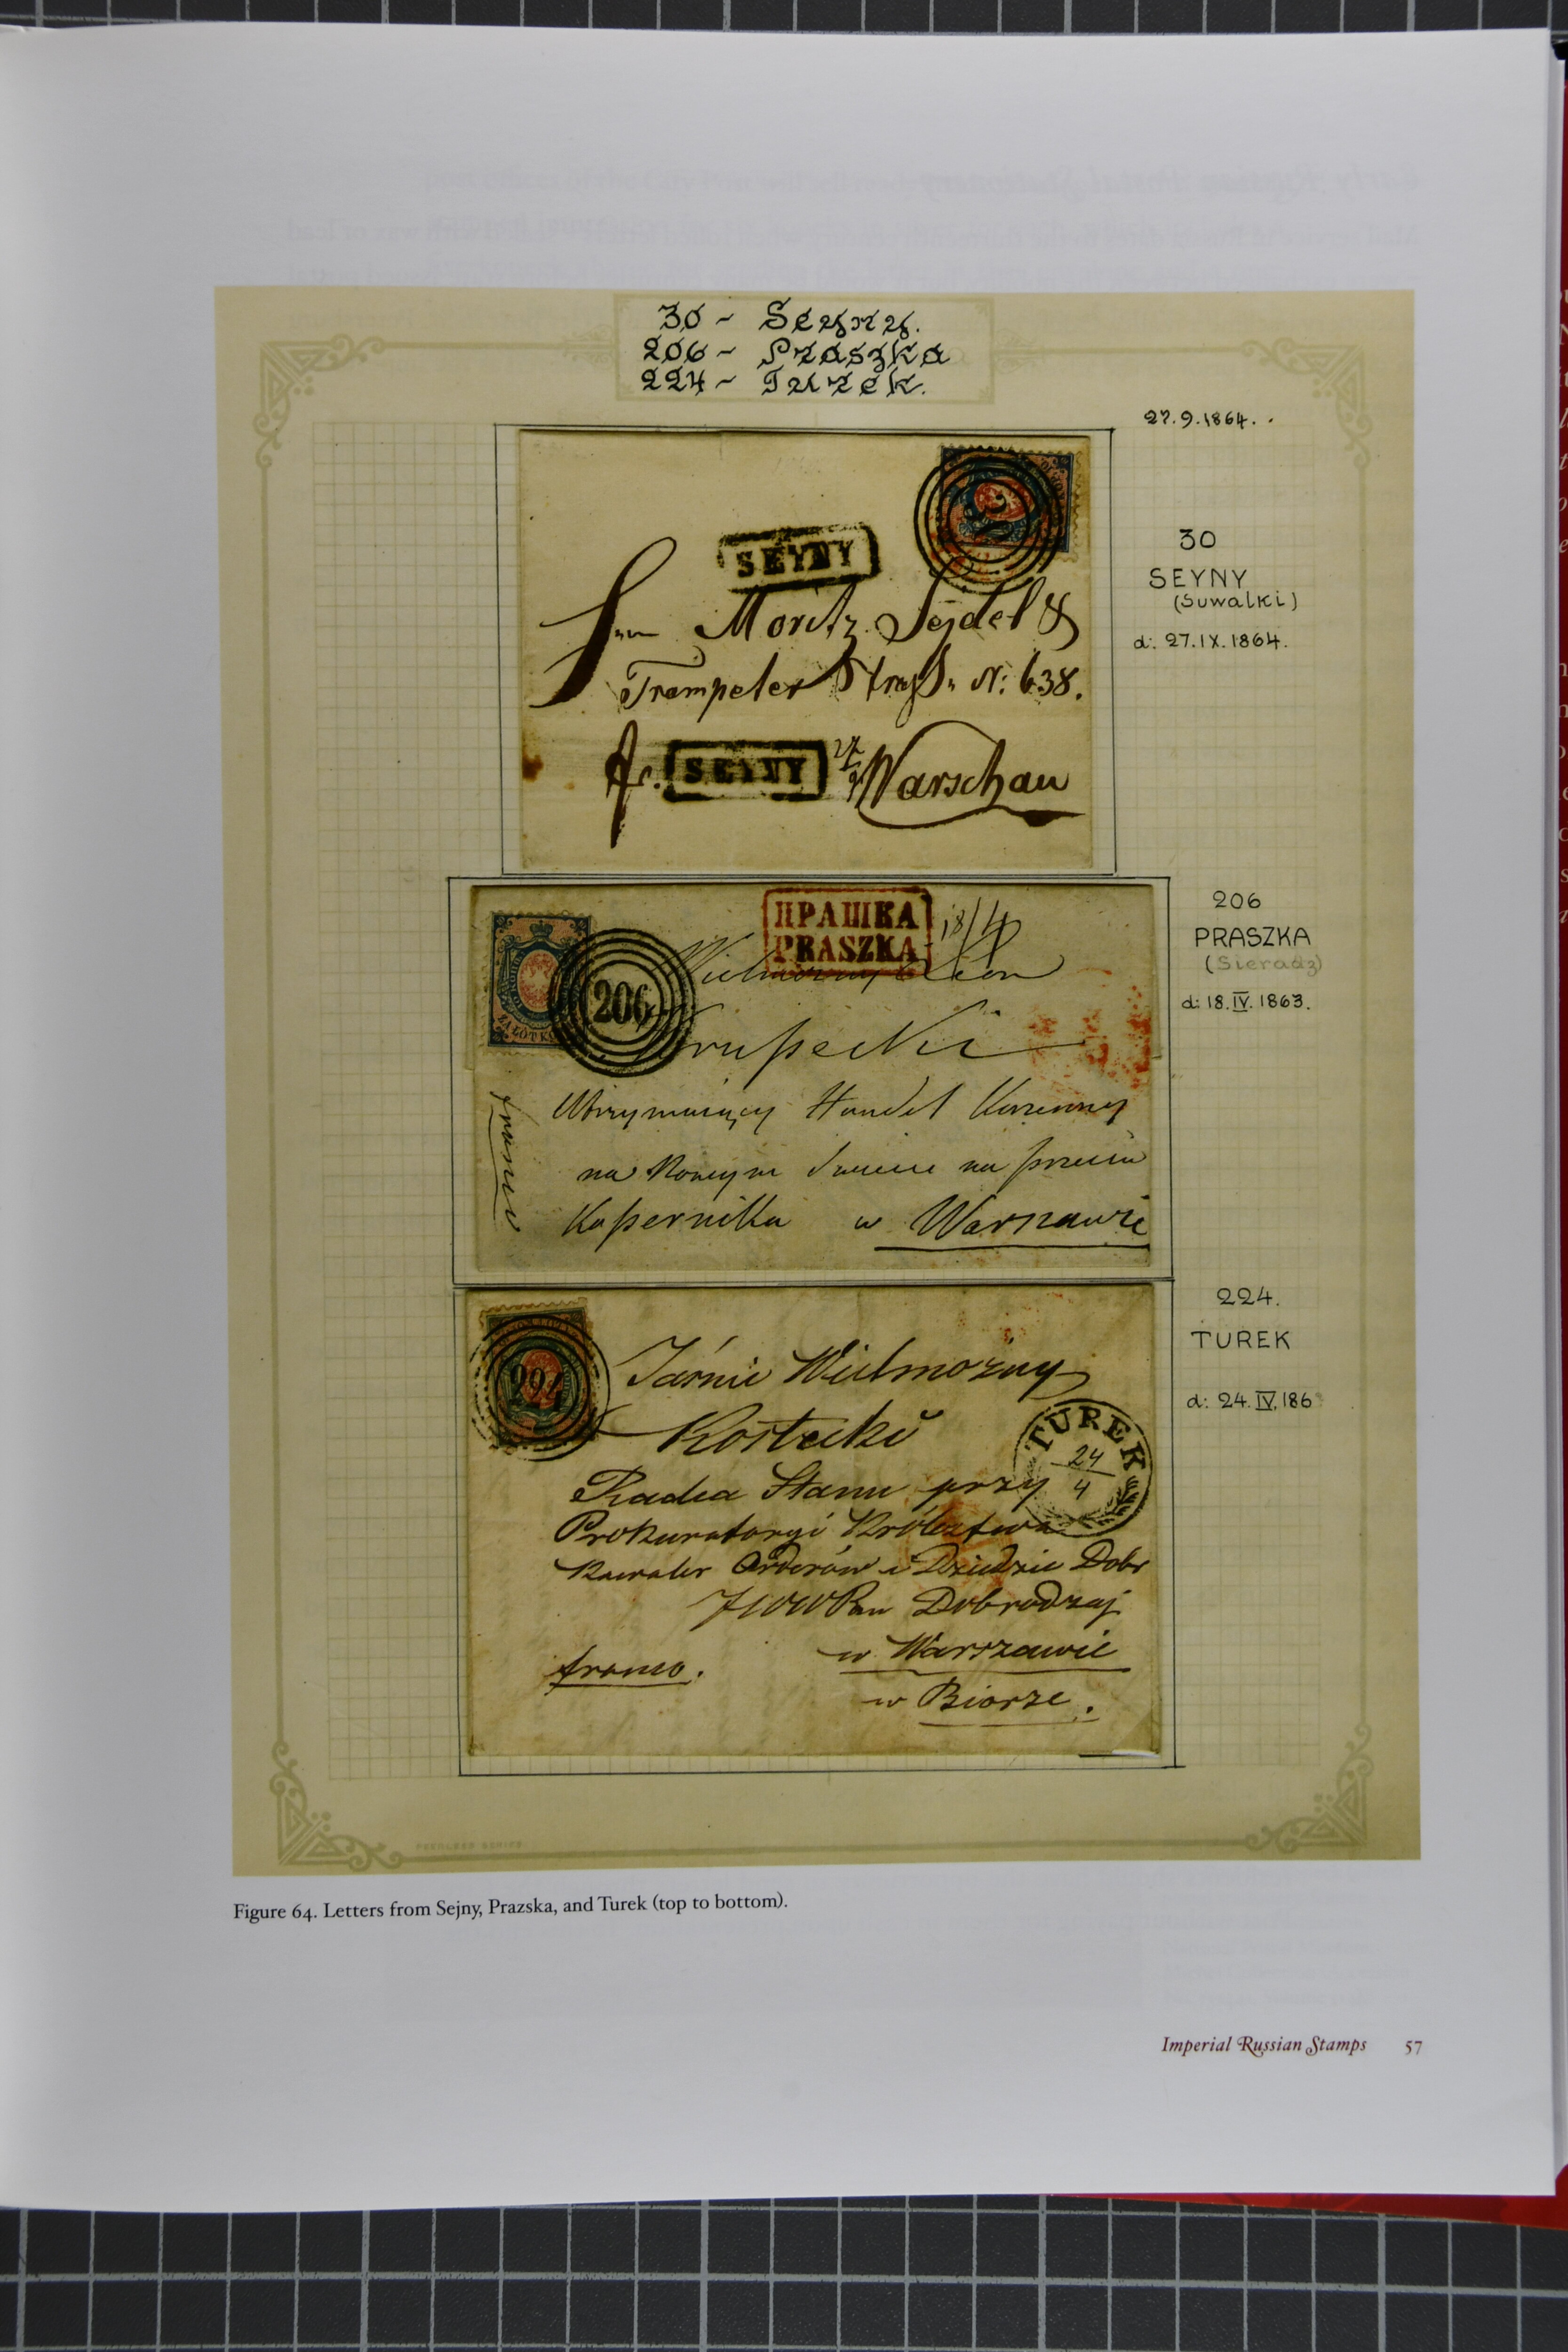 30 ~ Seyny.
206 ~ Praszka
224 ~ Turek.
27.9.1864.
SEYNY
Moritz Sejdel
Trompeter Straße N: 638.
SEYNY Warschau
30
SEYNY
(Suwalki)
d: 27.IX.1864.
ПРАШКА
PRASZKA
18/4
206
Krupecki
Utrzymuiący Handel Korzenny
na Nowym Swiecie na przeciw
Kopernika w Warszawie
franco
206
PRASZKA
(Sieradz)
d: 18.IV.1863.
224
Jaśnie Wielmożny
Kostecki
TUREK
24
4
Radca Stanu przy
Prokuratoryi Królestwa
Kawaler Orderów i Dziedzic Dobr
JWW Pan Dobrodzaj
w Warszawie
franco.
w Biorze.
224.
TUREK
d: 24.IV.186
PEERLESS SERIES
Figure 64. Letters from Sejny, Prazska, and Turek (top to bottom).
Imperial Russian Stamps 57